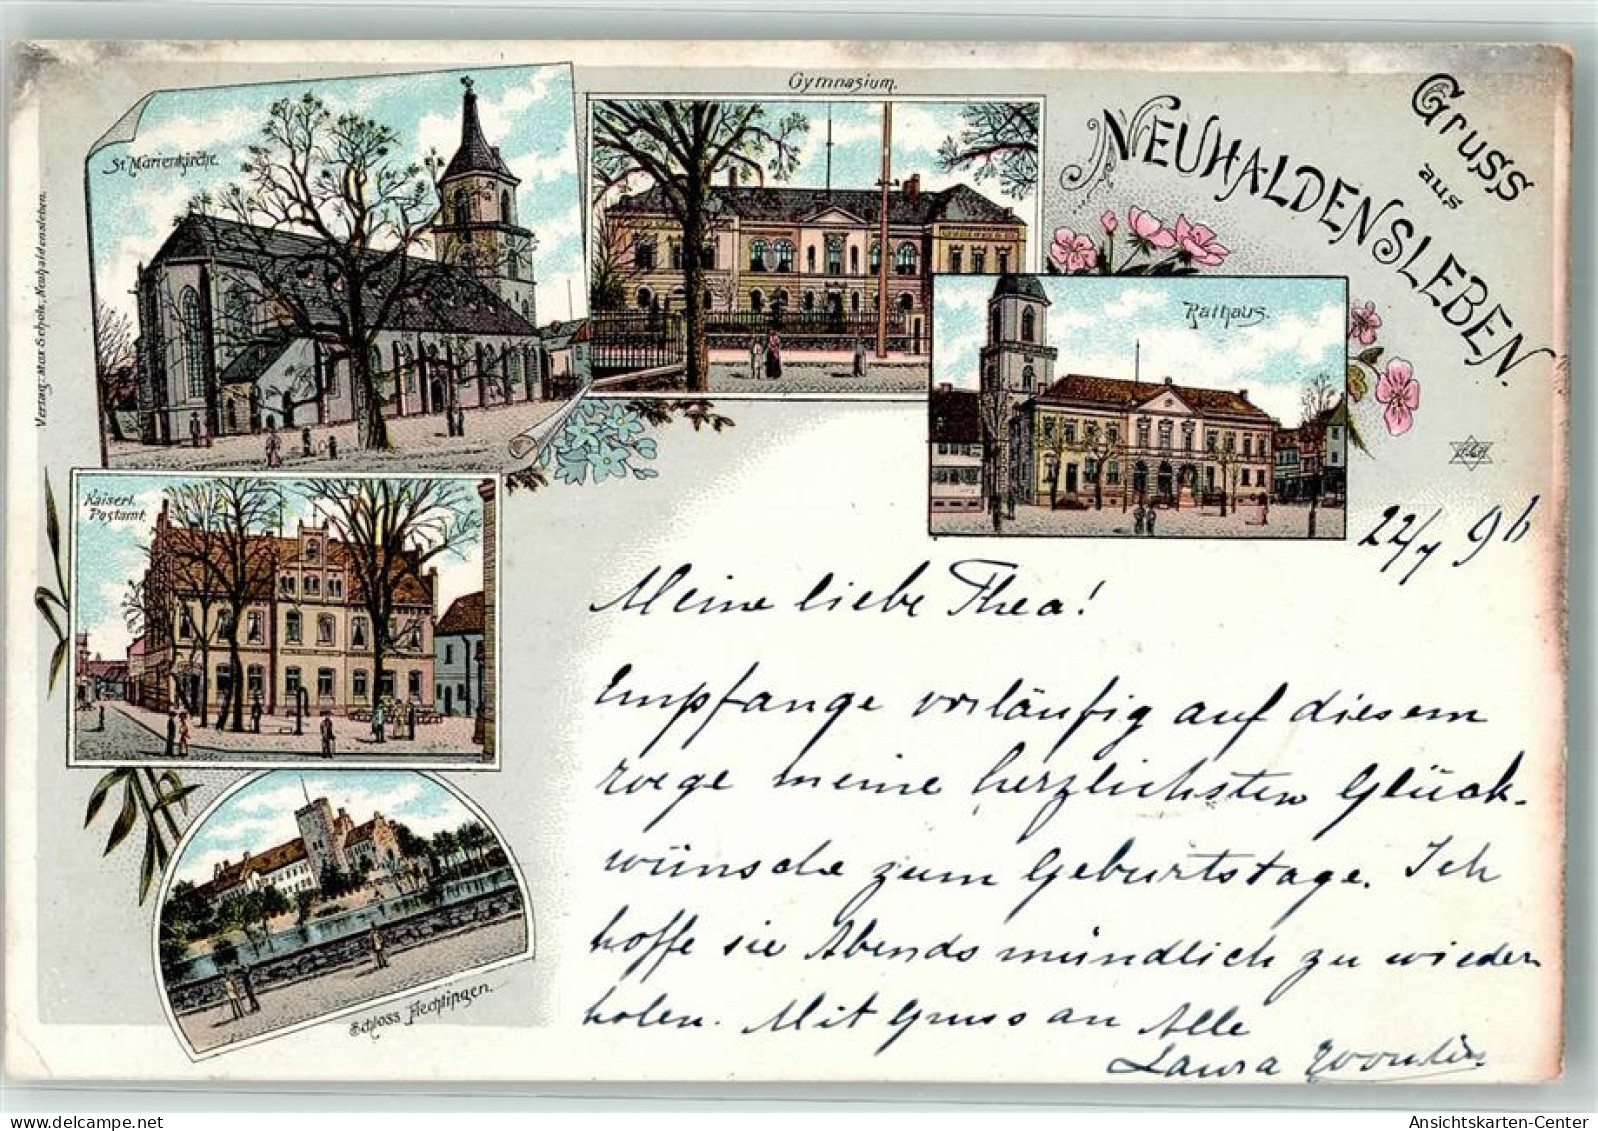 Gruss
aus
NEUHALDENSLEBEN.
St Marienkirche.
Gymnasium.
Rathaus.
Kaiserl.
Postamt.
Schloss Flechtingen.
Verlag: Max Schok, Neuhaldensleben.
22/7 96
Meine liebe Thea!
Empfange vorläufig auf diesem
wege meine herzlichsten Glück-
wünsche zum Geburtstage. Ich
hoffe sie Abends mündlich zu wieder
holen. Mit Gruss an Alle
Laura
Ansichtskarten-Center